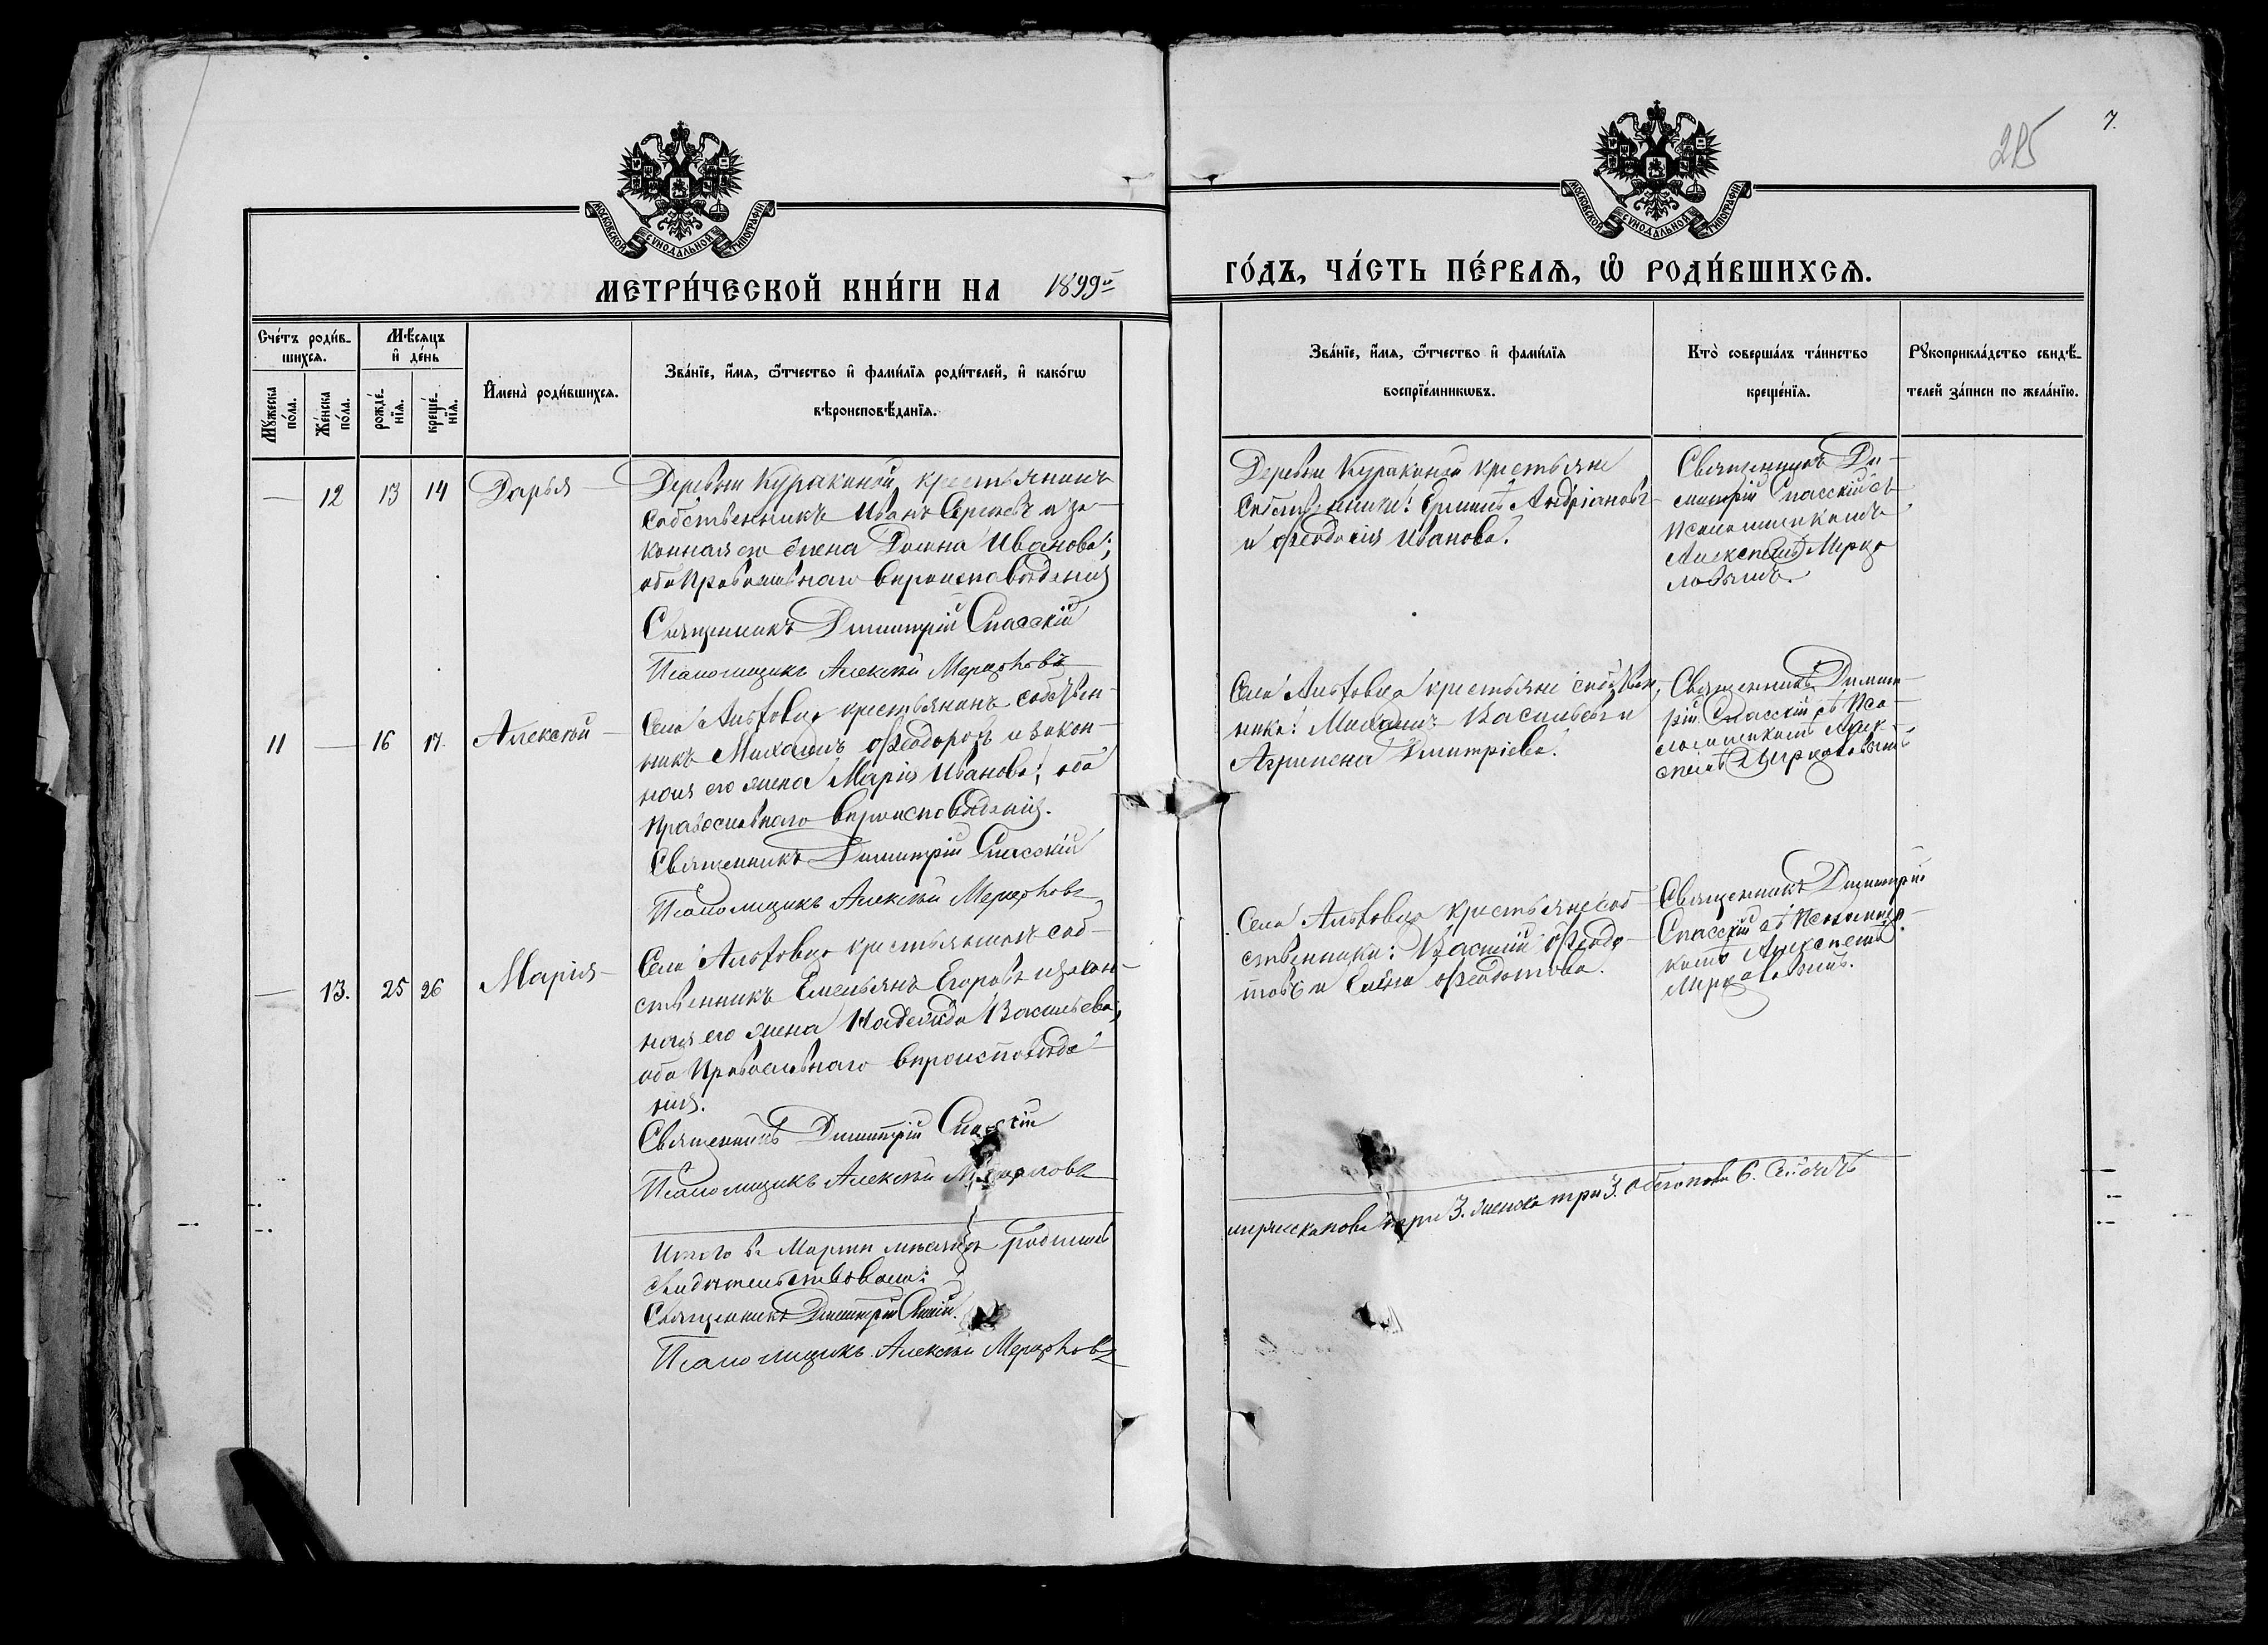 215
7.
МОСКОВСКОЙ СѴНОДАЛЬНОЙ ТИПОГРАФІИ
МОСКОВСКОЙ СѴНОДАЛЬНОЙ ТИПОГРАФІИ
МЕТРИ́ЧЕСКОЙ КНИ́ГИ НА 1899й
ГО́ДЪ, ЧА́СТЬ ПЕ́РВАѦ, Ѡ҆ РОДИ́ВШИХСѦ.
Сче́тъ роди́в-
шихсѧ.
Мѣ́сяцъ
и҆ де́нь
Мꙋжеска
по́ла.
Же́нска
по́ла.
рожде́-
нїѧ.
креще́-
нїѧ.
И҆мена̀ роди́вшихсѧ.
Зва́нїе, и҆́мѧ, ѻ҆́тчество и҆ фами́лїѧ роди́телей, и҆ како́гѡ
вѣроисповѣ́данїѧ.
Зва́нїе, и҆́мѧ, ѻ҆́тчество и҆ фами́лїѧ
воспрїе́мникѡвъ.
Кто̀ соверша́лъ та́инство
креще́нїѧ.
Рꙋкоприкла́дство свидѣ́-
телей за́писи по жела́нїю.
— 12 13 14 Дарья
Деревни Куракиной, крестьянинъ
собственникъ Иванъ Сергѣевъ и за-
конная его жена Иванова;
оба Православнаго вѣроисповѣденія
Священникъ Димитрій Спасскій
Псаломщикъ Алексѣй Мерцаловъ
Деревни Куракиной крестьяне
Собственники: Андріановъ
и Ѳеодосія Иванова.
Священникъ Ди-
митрій Спасскій съ
Псаломщикомъ
Алексѣемъ Мерца-
ловымъ.
11 — 16 17. Алексѣй
Села крестьянинъ собствен-
никъ Михаилъ Ѳеодоровъ и закон-
ная его жена Марія Иванова; оба
Православнаго вѣроисповѣденія.
Священникъ Димитрій Спасскій
Псаломщикъ Алексѣй Мерцаловъ
Села крестьяне собствен-
ники: Михаилъ Васильевъ и
Агрипена Димитріева.
Священникъ Димит-
рій Спасскій съ Пса-
ломщикомъ Алек-
сѣемъ Мерцаловымъ
— 13. 25 26 Марія
Села крестьянинъ соб-
ственникъ Емельянъ Егоровъ и закон-
ная его жена Надежда Васильева;
оба Православнаго вѣроисповѣде-
нія.
Священникъ Димитрій Спасскій
Псаломщикъ Алексѣй Мерцаловъ
Села крестьяне соб-
ственники: Василій Ѳеодо-
товъ и Елена Ѳеодотова.
Священникъ Димитрій
Спасскій съ Псаломщи-
комъ Алексѣемъ
Мерцаловымъ.
Итого въ Мартѣ мѣсяцѣ родилось
мужеска пола три 3. женска три 3. обоего пола 6.
свидѣтельствовали:
Священникъ Димитрій Спасскій.
Псаломщикъ Алексѣй Мерцаловъ